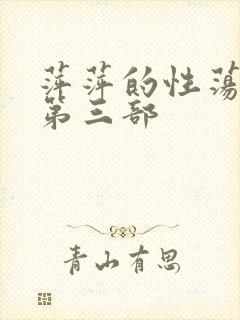 萍萍的性荡
第三部
青山有思